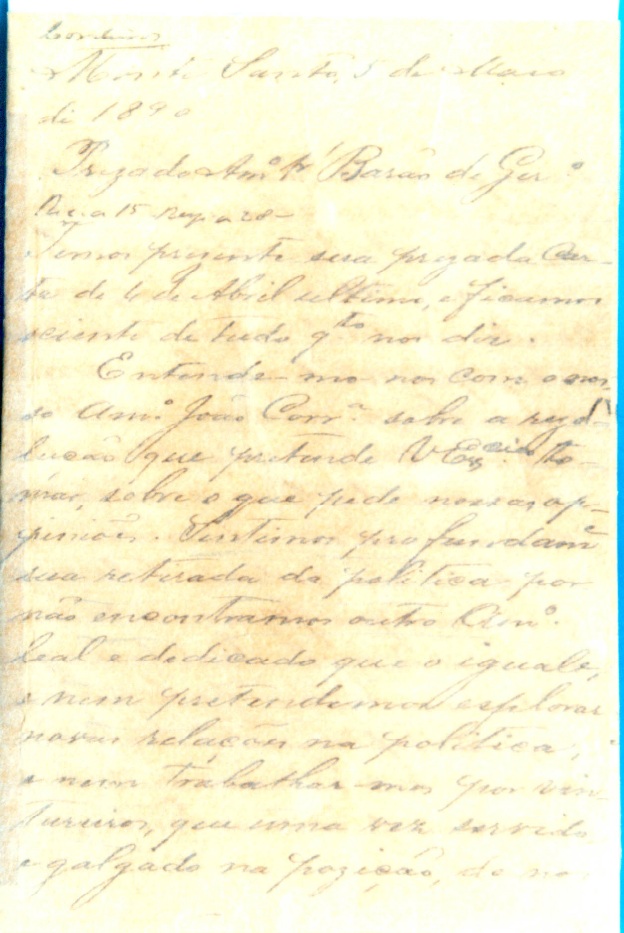 Monte Santo, 5 de Maio
de 1890
Prezado Amº Sr. Barão de Ger.º
Temos presente sua prezada Car-
ta de 4 de Abril ultimo, e ficamos
sciente de tudo q.to nos diz.
Entende-mo nos com o nos-
so Amº João Corr.ª sobre a rezo-
lução que pretende V Ex.cia to-
mar, sobre o que pede nossas op-
piniões. Sentimos profundam.e
sua retirada da politica por
não encontramos outro Amº.
leal e dedicado que o iguale,
e nem pretendemos explorar
novas relações na politica,
e nem trabalhar-mos por vin-
tureiros, que uma vez servido
e galgado na pozição, de nos